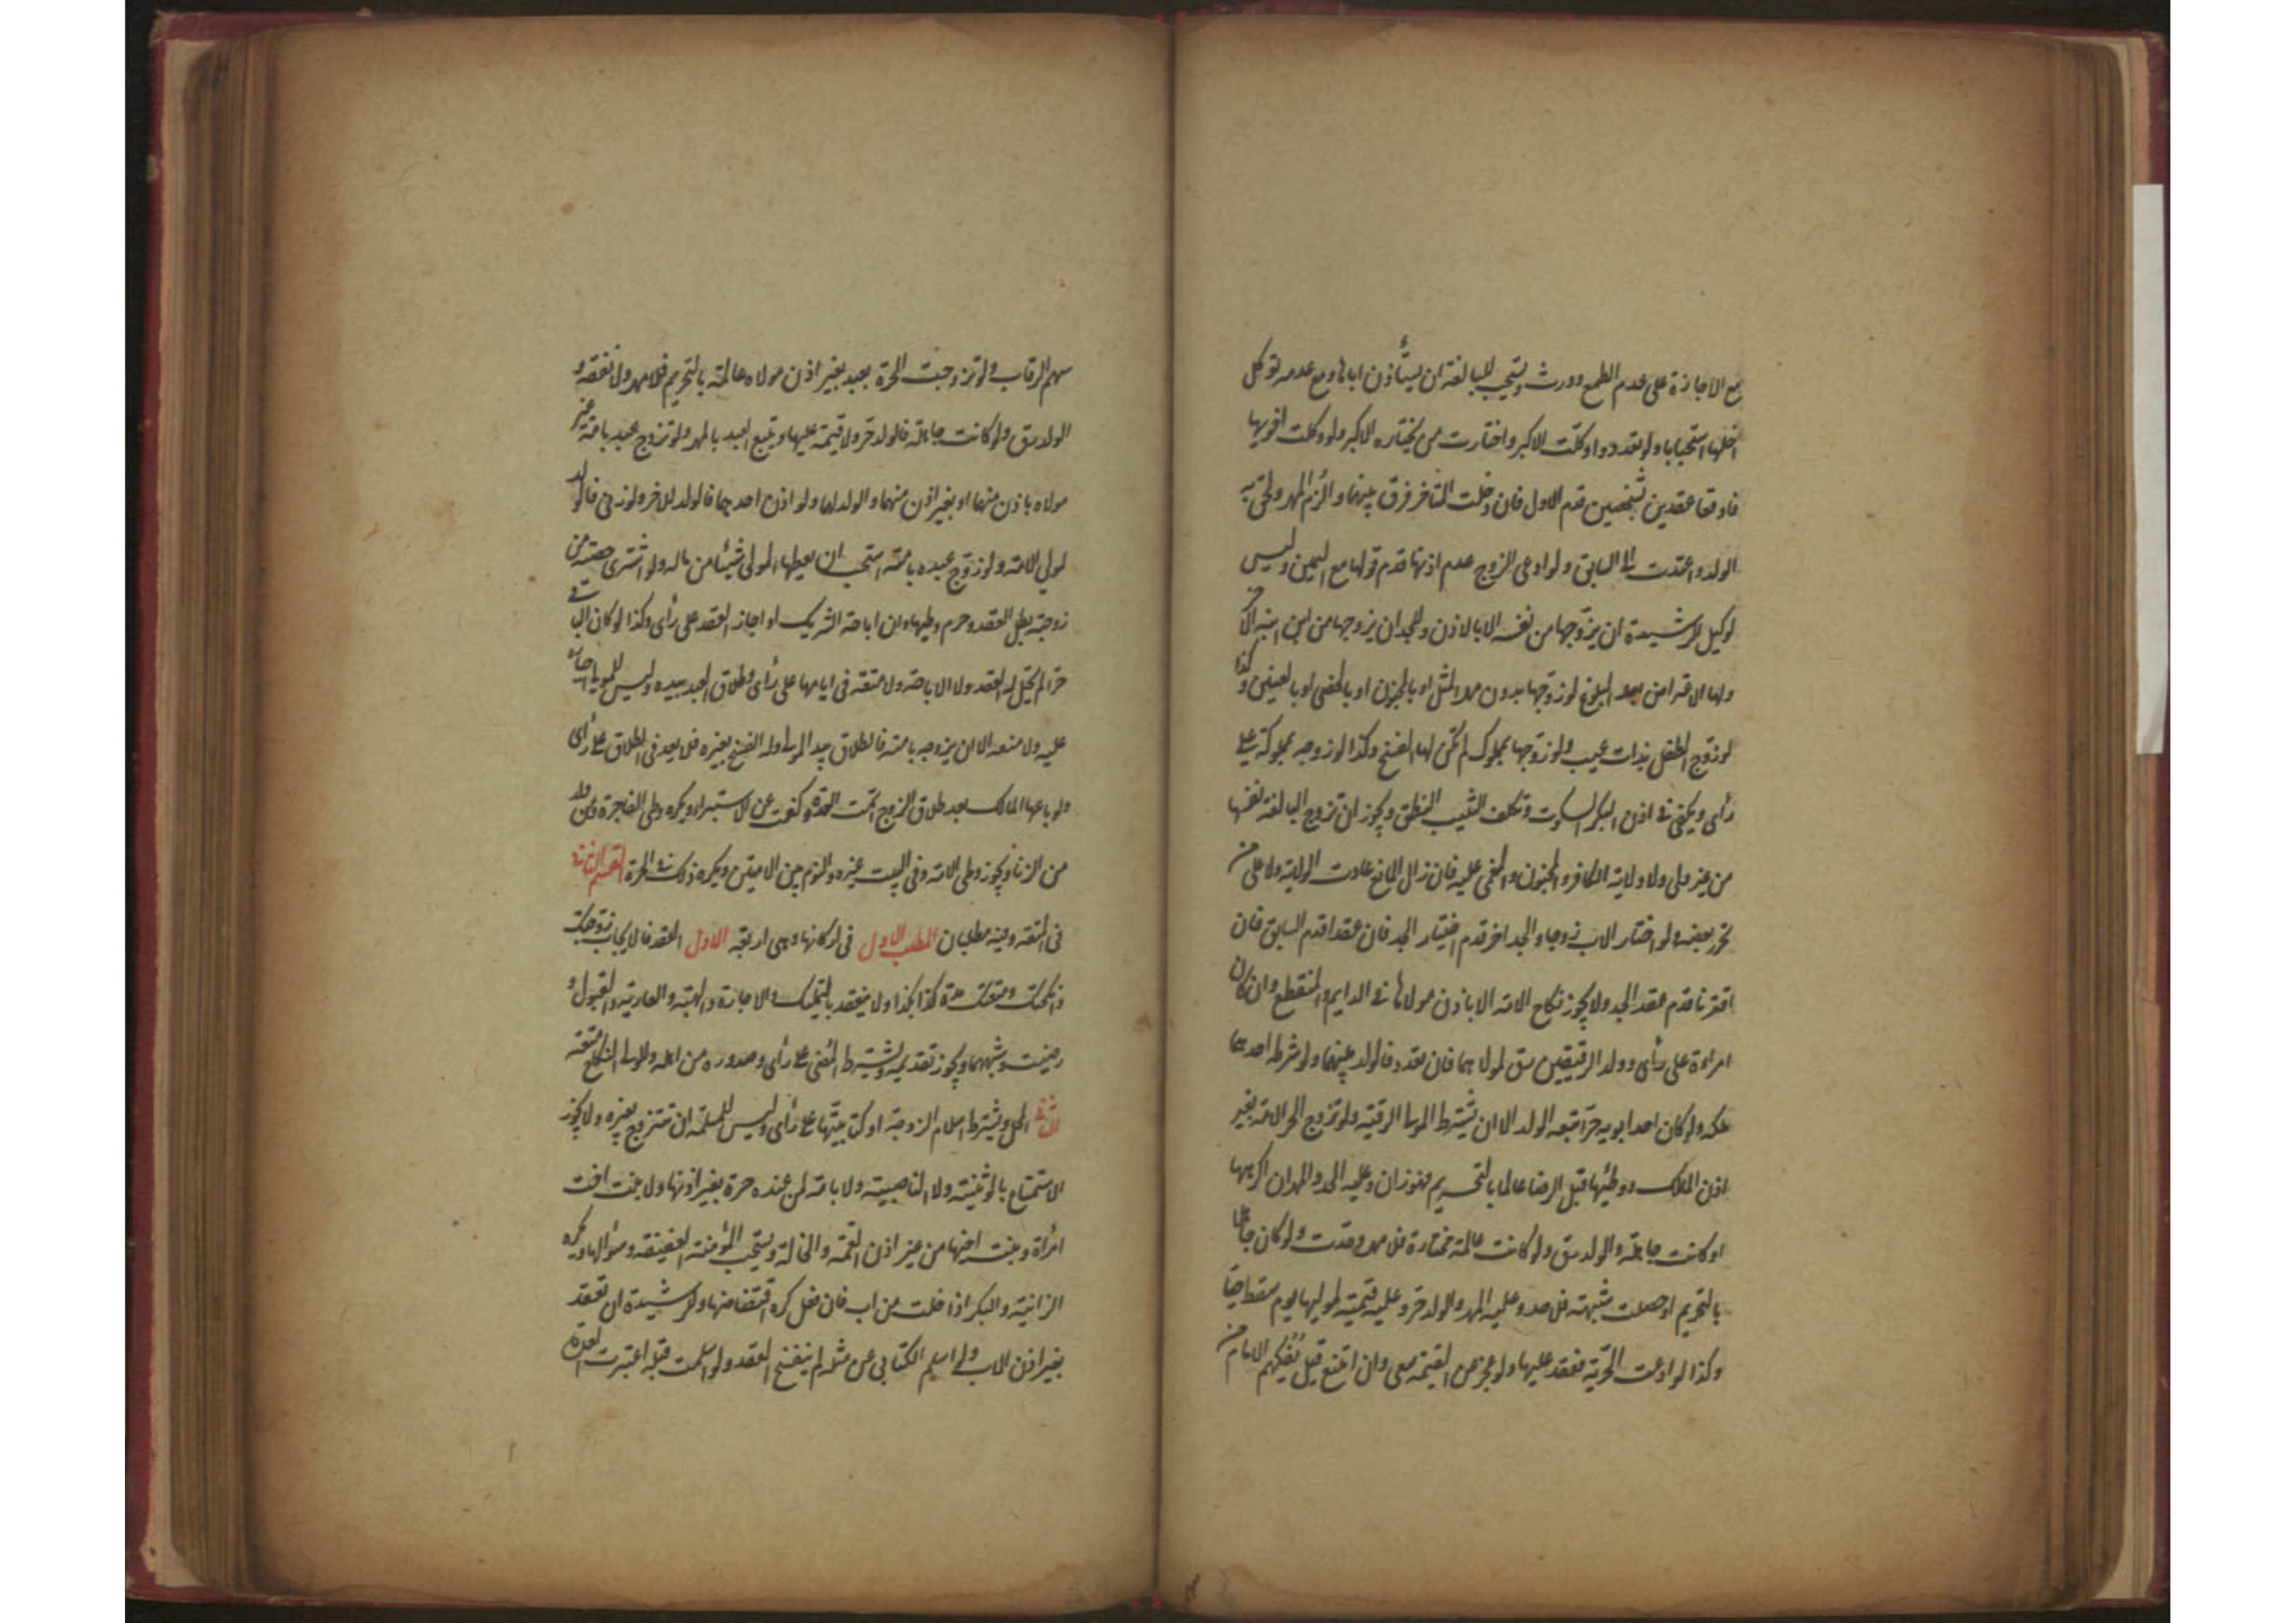 مع الاجازة على عدم الطمع وورث ويستحب للبالغة ان يستأذن اباها ومع عدمه توكل
اخاها استحبابا ولو تعددوا وكلت الاكبر واختارت من يختاره الاكبر ولو وكلت اخويها
فاوقعا عقدين لشخصين قدم الاول فان دخلت المتاخر فرق بينهما والزم المهر ولحق به
الولد واعتدت للسابق ولو ادعى الزوج عدم اذنها قدم قولها مع اليمين وليس
لوكيل الرشيدة ان يزوجها من نفسه الا بالاذن وللجد ان يزوجها من ابن ابنه الاخر
ولها الاعتراض بعد البلوغ لو زوجها بدون مهر المثل او بالمجنون او بالخصي او بالعنين وكذا
لو زوج الطفل بذات عيب ولو زوجها بمملوك لم يكن لها الفسخ وكذا لو زوجه بمملوكة على
رأي ويكفي في اذن البكر السكوت وتكلف الثيب النطق ويجوز ان تزوج البالغة نفسها
من غير ولي ولا ولاية للكافر والمجنون والمغمى عليه فان زال المانع عادت الولاية ولا على من
تحرر بعضه ولو اختار الاب زوجا والجد اخر قدم اختيار الجد فان عقدا قدم السابق فان
اقترنا قدم عقد الجد ولا يجوز نكاح الامة الا باذن مولاها في الدايم والمنقطع وان كان
امراءة على رأي وولد الرقيقين رق لمولاهما فان تعدد فالولد بينهما ولو شرطه احدهما
ملكه ولو كان احد ابويه حرا تبعه الولد الا ان يشترط المولى الرقية ولو تزوج الحر الامة بغير
اذن المالك ووطئها قبل الرضا عالما بالتحريم فهو زان وعليه الحد والمهر ان اكرهها
او كانت جاهلة والولد رق ولو كانت عالمة مختارة فلا مهر وحدت ولو كان جاهلا
بالتحريم او حصلت شبهة فلا حد وعليه المهر والولد حر وعليه قيمته لموليها يوم سقط حيا
وكذا لو ادعت الحرية فعقد عليها ولو عجز عن القيمة سعى وان امتنع قيل يفكهم الامام من
سهم الرقاب ولو تزوجت الحرة بعبد بغير اذن مولاه عالمة بالتحريم فلا مهر ولا نفقة و
الولد رق ولو كانت جاهلة فالولد حر ولا قيمة عليها ويتبع العبد بالمهر ولو تزوج عبد بامة غير
مولاه باذن منهما او بغير اذن منهما والولد لهما ولو اذن احدهما فالولد للاخر ولو زنى فالولد
لمولى الامة ولو زوج عبده بامته استحب ان يعطيها المولى شيئا من ماله ولو اشترى حصة من
زوجته بطل العقد وحرم وطيها وان اباحه الشريك او اجاز العقد على رأي وكذا لو كان الباقي
حرا لم يحل له العقد ولا الاباحة ولا متعة في ايامها على رأي وطلاق العبد بيده وليس للمولى اجباره
عليه ولا منعه الا ان يزوجه بامته فالطلاق بيد المولى وله الفسخ بغيره فلا يعد في الطلاق على رأي
ولو باعها المالك بعد طلاق الزوج اتمت العدة وكفت عن الاستبراء ويكره وطي الفاجرة ومن ولد
من الزنا ويجوز وطي الامة وفي البيت غيره والنوم بين الامتين ويكره ذلك في الحرة القسم الثاني
في المتعة وفيه مطلبان المطلب الاول في اركانها وهي اربعة الاول العقد فالايجاب زوجتك
وانكحتك ومتعتك مدة كذا بكذا ولا ينعقد بالتمليك والاجارة والهبة والعارية والقبول و
رضيت وشبههما ويجوز تقديمه ويشترط المضي على رأي وصدوره من اهله وللمولى النكاح متعة
الثاني المحل ويشترط اسلام الزوجة او كتابيتها على رأي وليس للمسلمة ان تتزوج بغيره ولا يجوز
الاستمتاع بالوثنية ولا الناصبية ولا بامة لمن عنده حرة بغير اذنها ولا بنت اخت
امرأة وبنت اخيها من غير اذن العمة والخالة ويستحب المؤمنة العفيفة وسؤالها ويكره
الزانية والبكر اذا خلت من اب فان فعل كره اقتضاضها وللرشيدة ان تعقد
بغير اذن الاب ولو اسلم الكتابي عن مثله لم ينفسخ العقد ولو اسلمت قبله اعتبرت العدة